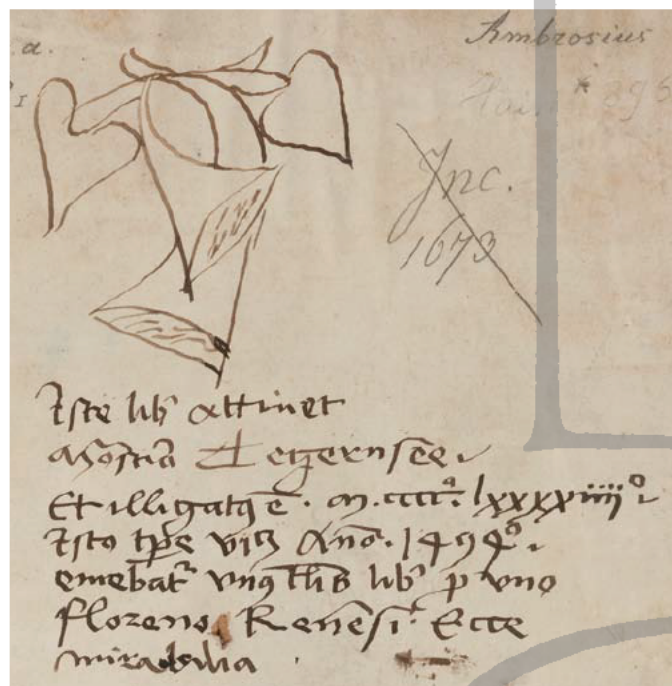 a.
Ambrosius
1
Hain * 896
Inc.
1673
Iste lib' attinet
Tegernsēē
Et illigatꝯ ē. m.cccc.º lxxxxiiiiº
Isto tp̄e vitꝫ Anō. 1494º.
emebat᷑ vnꝯ lib' p vno
floreno Renēsi. Ecce
mirabilia